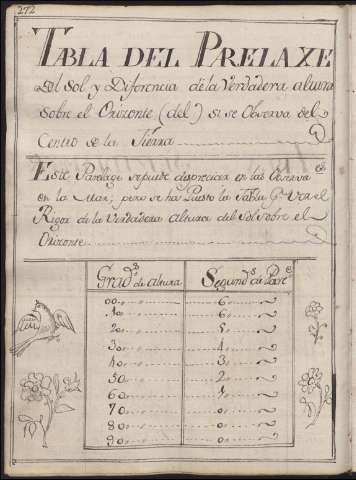 272
TABLA DEL PARELAXE
del Sol y Diferencia de la Verdadera altura
sobre el Orizonte (del) si se Observa del
Centro de la Tierra
Este Paralage se puede despreciar en las Observa.es
en la Mar; pero se ha Puesto la Tabla Ver el
Rigor de la Verdadera altura del Sol sobre el
Orizonte
Grad.s de altura Segund.s de Pare.e
00 6
10 6
20 5
30 4
40 3
50 2
60 1
70 0
80 0
90 0